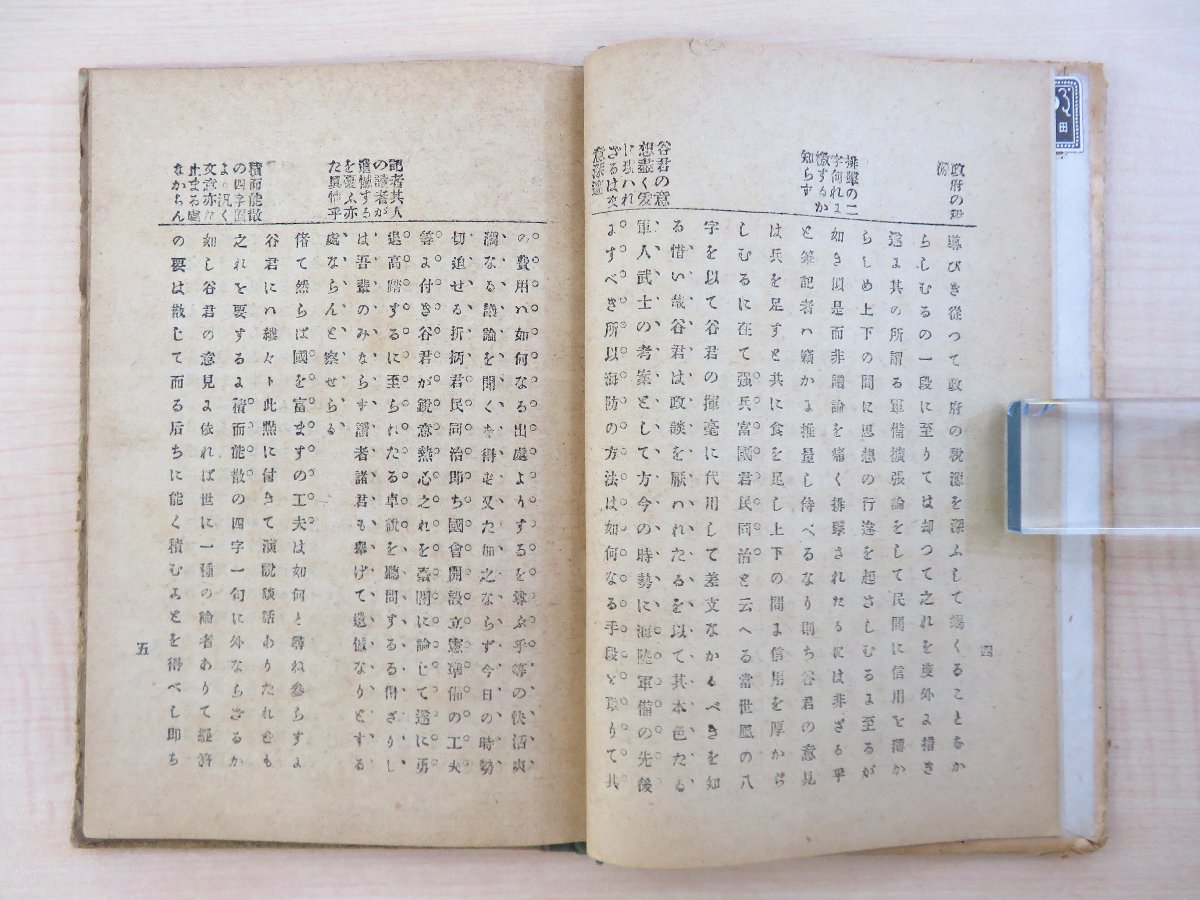 政府の財
源
導びき從つて政府の稅源を深ふして竭くることなか
らしむるの一段に至りては却つて之れを度外よ措き
遂よ其の所謂る軍備擴張論をして民間に信用を薄か
らしめ上下の間に思想の行違を起さしむるよ至るが
排擊の二
字何れよ
慣するか
知らす
如き似是而非議論を痛く排擊されたるには非ざる乎
と筆記者ハ竊かよ推量し侍べるなり則ち谷君の意見
は兵を足すと共に食を足し上下の間よ信用を厚から
しむるに在て强兵富國君民同治と云へる當世風の八
字を以て谷君の揮毫に代用して差支なかるべきを知
る惜い哉谷君は政談を厭ハれたるを以て其本色たる
谷君の意
想盡く爰
に現ハれ
ざるは
意深遠
軍人武士の考案として方今の時勢に海陸軍備の先後
よすべき所以海防の方法は如何なる手段を取りて其
四
の費用ハ如何なる出處よりするを尊ぶ乎等の快活爽
濶なる議論を聞くを得ず又た加之ならず今日の時勢
切迫せる折柄君民同治即ち國會開設立憲準備の工夫
等よ付き谷君が銳意熱心之れを臺閣に論じて遂に勇
記者其人
の讀者が
遺憾する
を憂ふ亦
た眞情乎
退高踏するに至られたる卓說を聽聞するを得ざりし
は吾輩のみならず讀者諸君も擧げて遺憾なりとする
處ならんと察せらる
偖て然らば國を富ますの工夫は如何と尋ね參らすよ
谷君にハ縷々此點に付きて演說談話ありたれども
積而能散
の四字真
よ汎く
文章亦た
止まる處
なからん
之れを要するよ積而能散の四字一句に外ならざるか
如し谷君の意見よ依れば世に一種の論者ありて經濟
の要は散じて而る后ちに能く積むことを得べし即ち
五
田